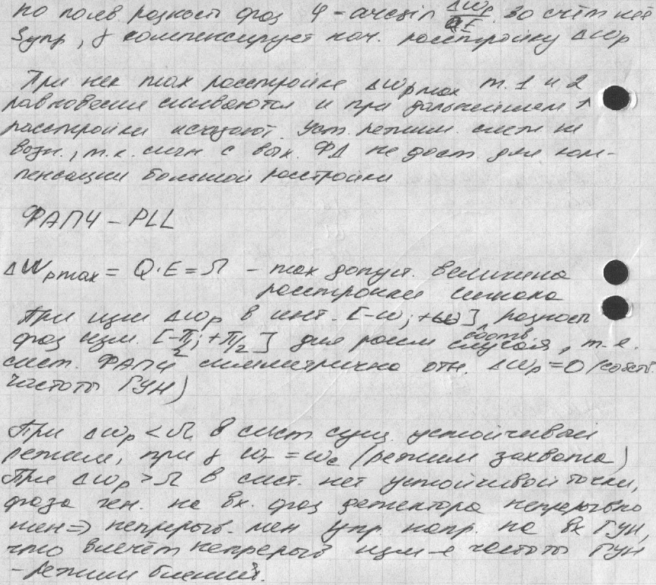 по полев. разность фаз φ - arcsin Δωр/QE. За счёт неё
Зупр, γ компенсирует нач. расстройку Δωр
При нек max расстройке Δωр max т. 1 и 2
равновесия сливаются и при дальнейшем ↑
расстройки исчезают. Уст. режим сист не
возн., т.к. сигн с вых. ФД не дост для ком-
пенсации большой расстройки
ФАПЧ – PLL
Δωр max = Q·E = Ω – max допуст. величина
расстройки сигнала
При изм Δωр в инт. [-ω; +ω] разность
фаз изм. [-π/2; +π/2] для рассм случая, т.е.
сист. ФАПЧ симметрична отн. Δωр = 0 (собств.
частоты ГУН)
При Δωр < Ω в сист сущ. устойчивый
режим, при γ ωг = ωс (режим захвата)
При Δωр > Ω в сист. нет устойчивой точки,
фаза ген. на вх. фаз детектора непрерывно
мен ⇒ непрерыв. мен упр. напр. на вх ГУН,
что влечёт непрерыв изм-е частоты ГУН
- режим биений.